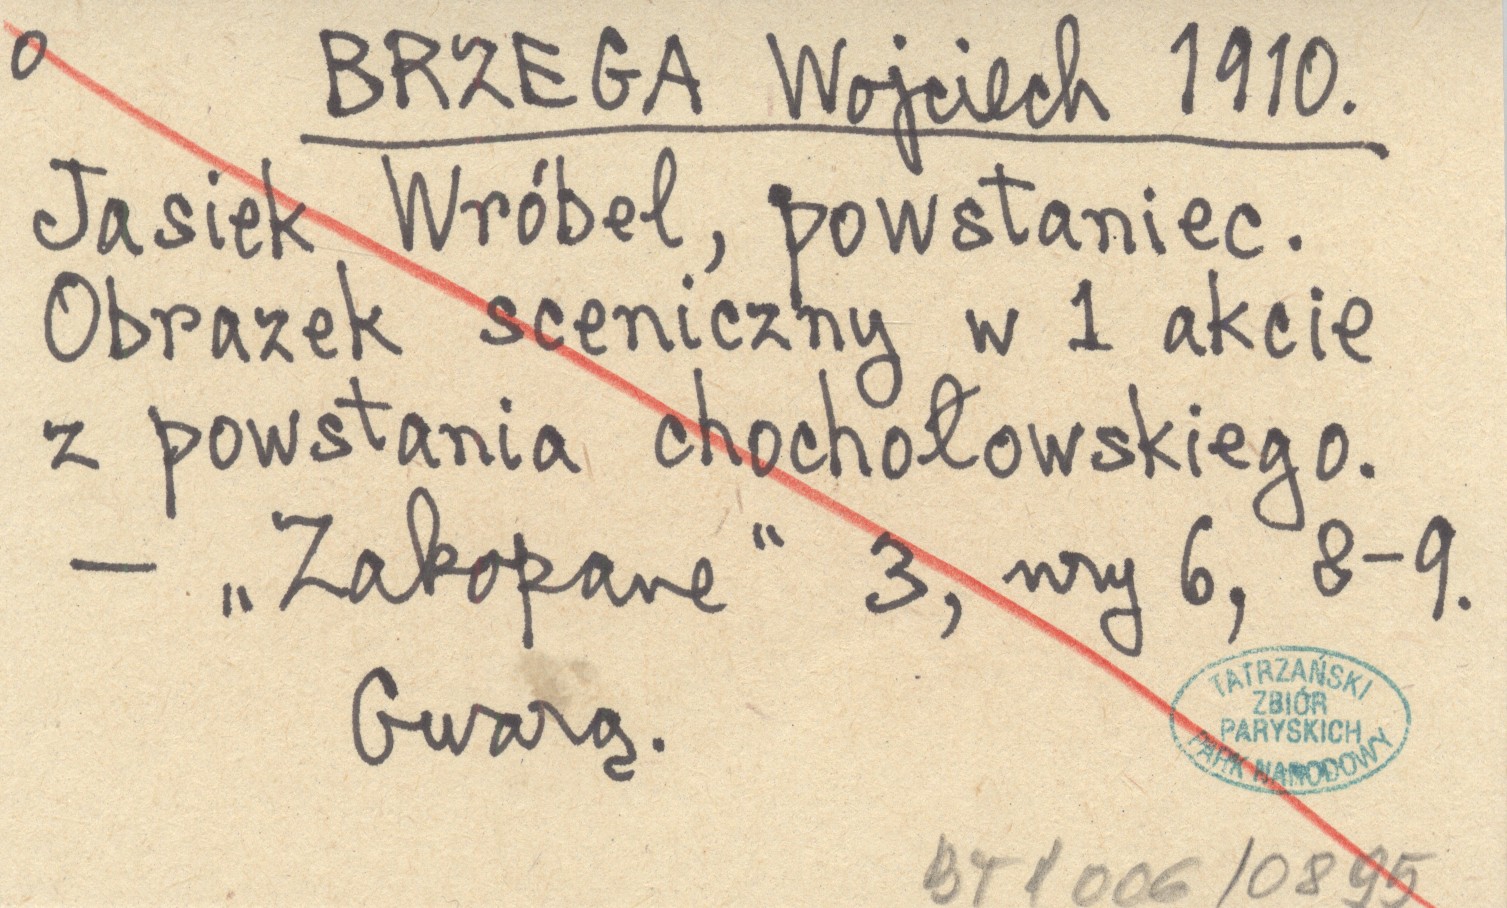 o BRZEGA Wojciech 1910.
Jasiek Wróbel, powstaniec.
Obrazek sceniczny w 1 akcie
z powstania chochołowskiego.
— „Zakopane“ 3, nry 6, 8-9.
Gwarą.
TATRZAŃSKI
ZBIÓR
PARYSKICH
PARK NARODOWY
BT 1 006/0895